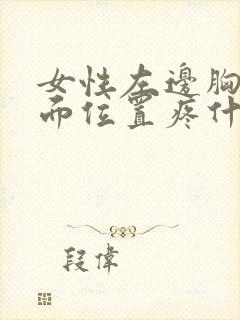 女性左邊胸
而位置疼什
段偉